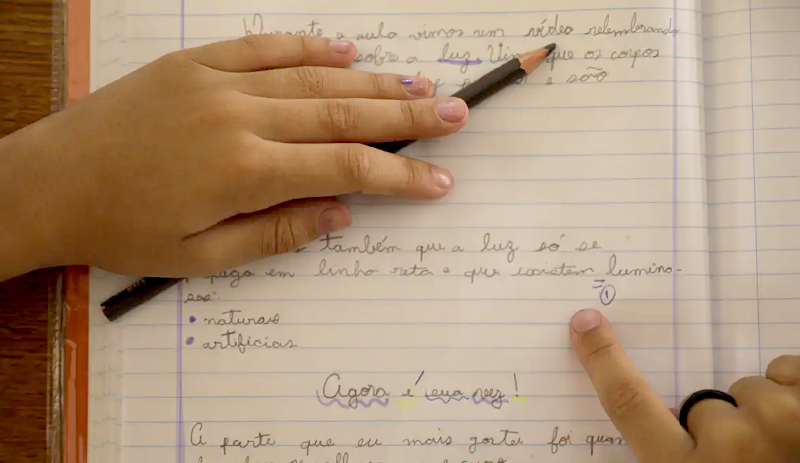 Durante a aula vimos um vídeo relembrando
sobre a luz. que os corpos
e são
também que a luz só se
em linha reta e que existem lumino-
sos:
① 
• naturais
• artificias
Agora é sua vez!
A parte que eu mais gostei foi